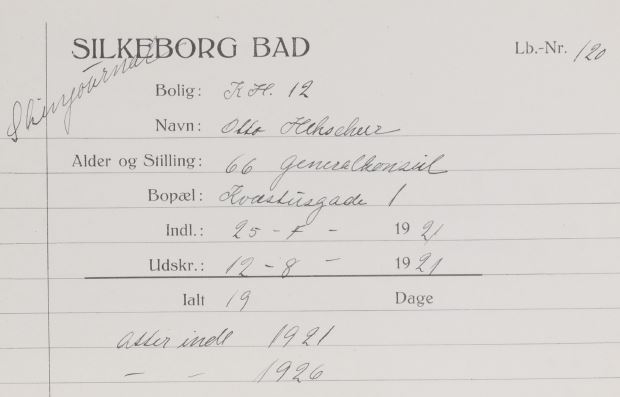 SILKEBORG BAD
Lb.-Nr. 120
Bolig: K.H. 12
Navn: Otto
Alder og Stilling: 66 Generalkonsul
Bopæl: Kvæsthusgade 1
Indl.: 25 - 7 - 1921
Udskr.: 12 - 8 - 1921
Ialt 19 Dage
atter indl 1921
— — 1926